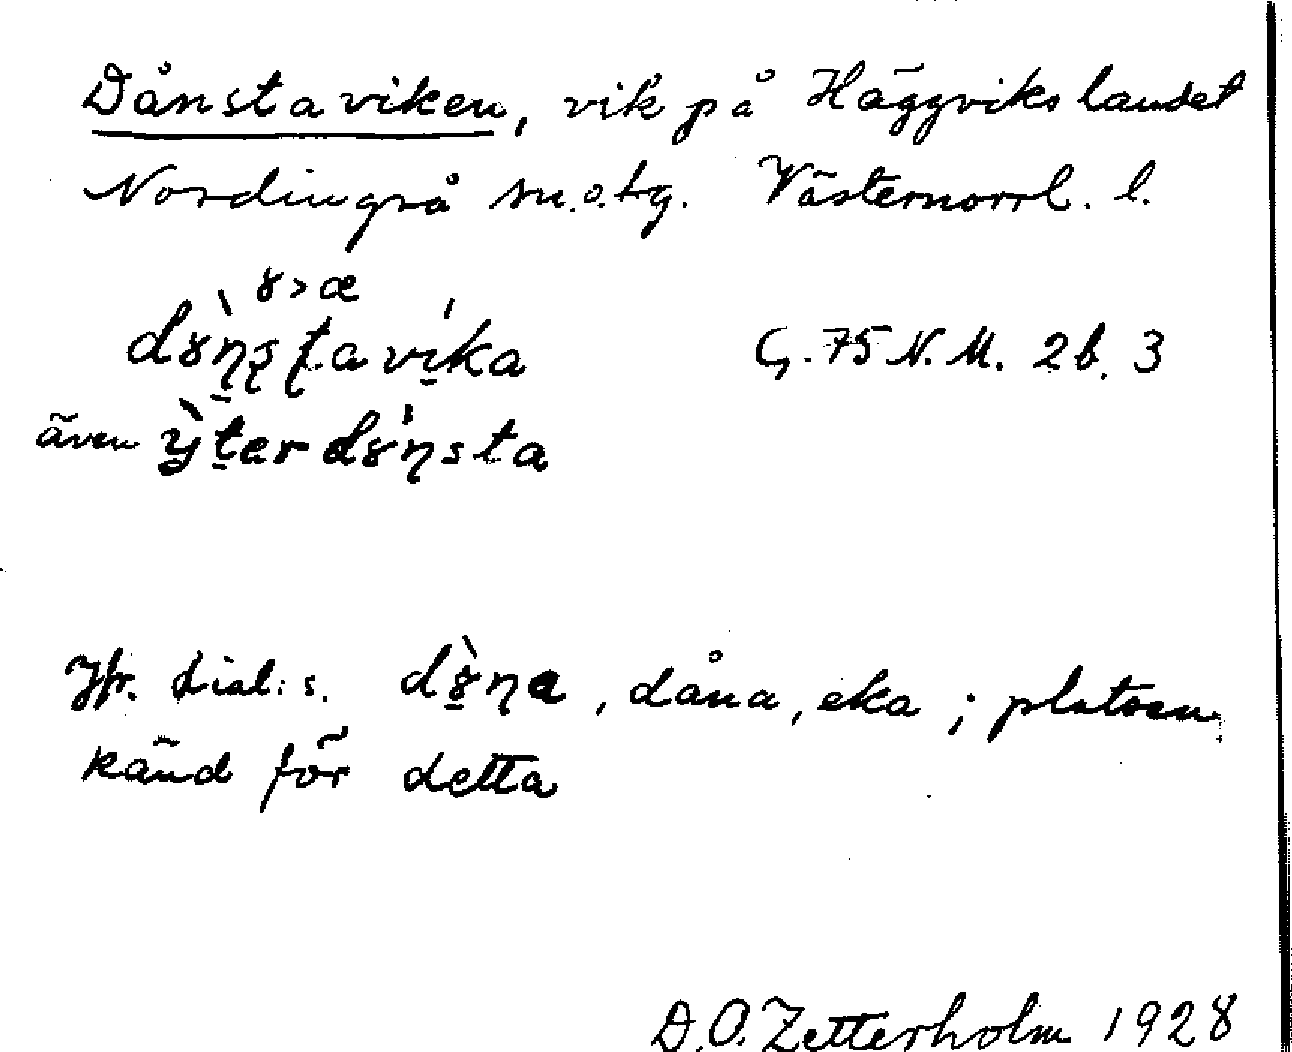 Dånstaviken, vik på Häggvikslandet
Nordingrå sn. o. tg. Västernorrl. l.
ȣ > æ
dȣ̀ŋşţavíka G. 75 N.M. 2 b. 3
även ỳterdȣ́ŋsta
Jfr. dial: s. dȣ̀ŋa, dåna, eka; platsen
känd för detta
D.O. Zetterholm 1928